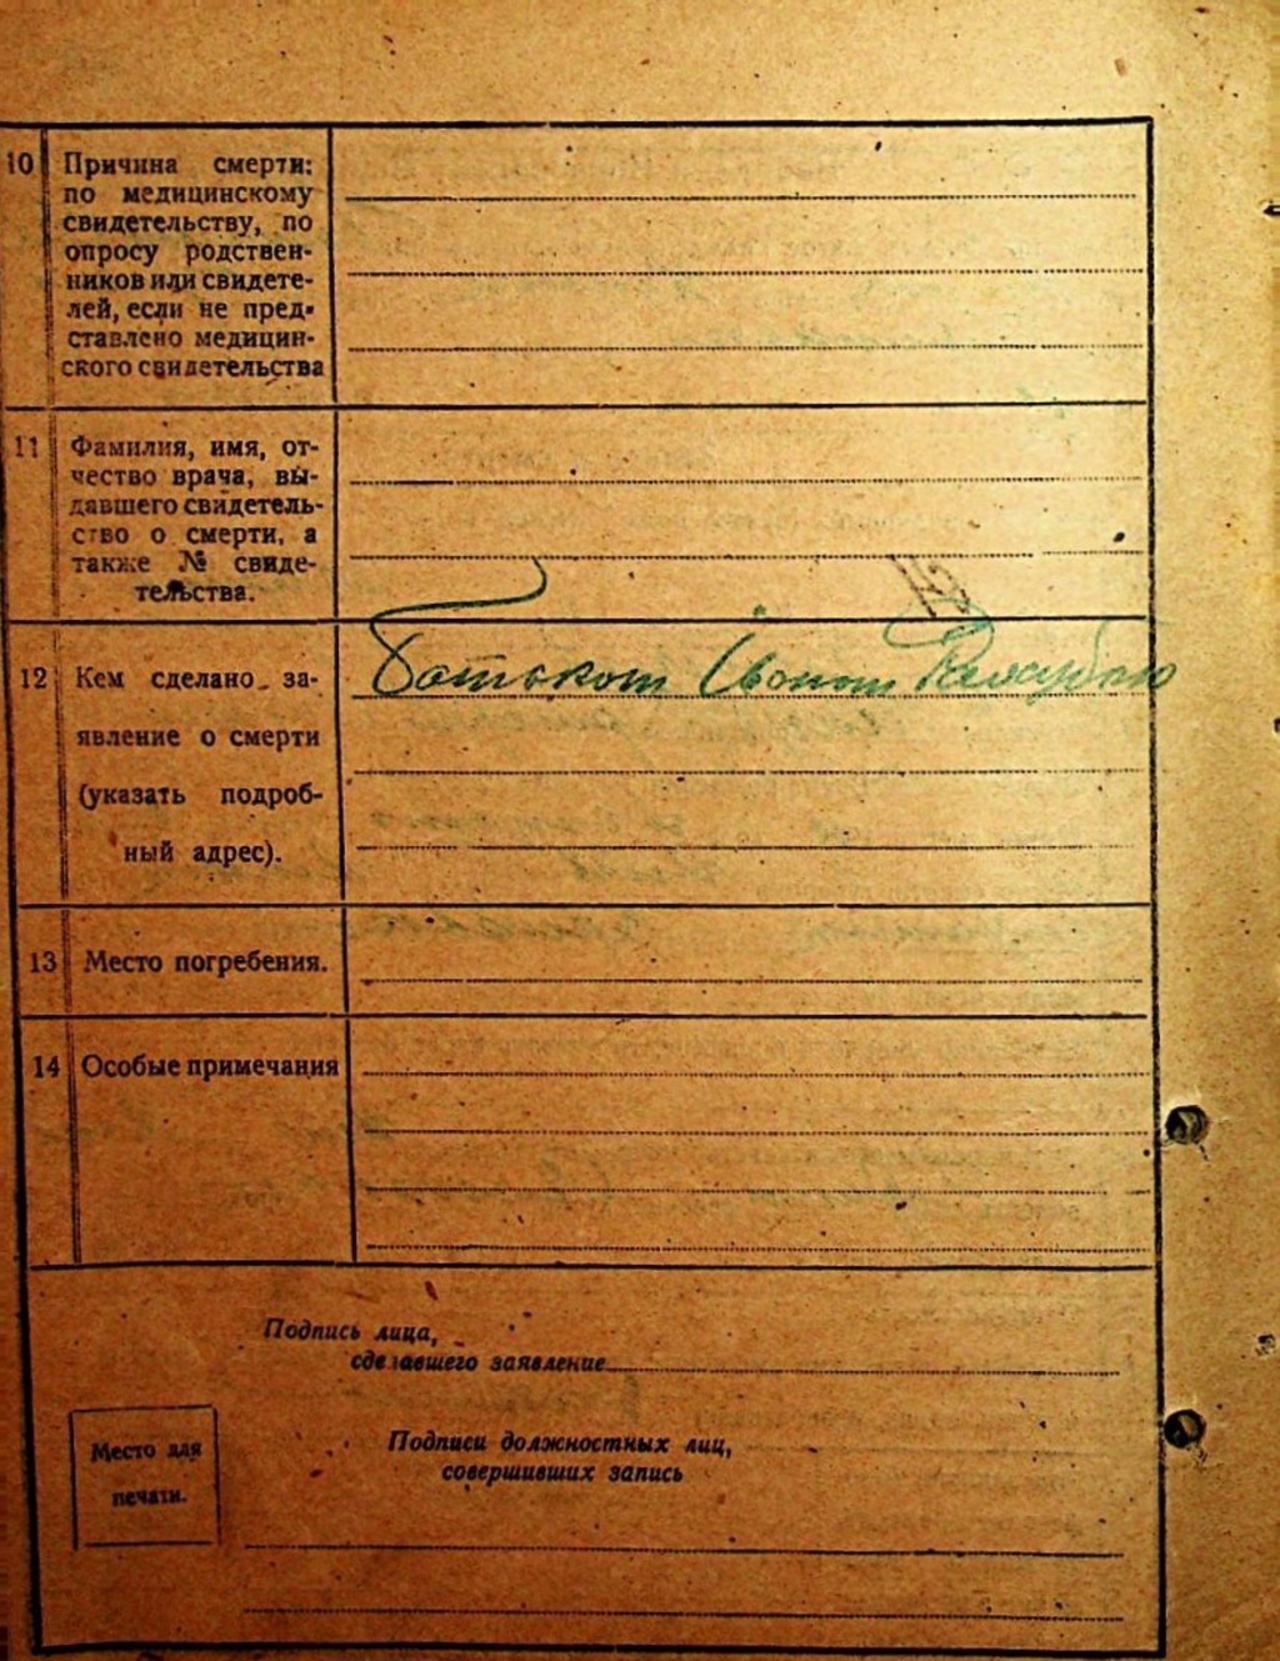 10 Причина смерти:
по медицинскому
свидетельству, по
опросу родствен-
ников или свидете-
лей, если не пред-
ставлено медицин-
ского свидетельства
11 Фамилия, имя, от-
чество врача, вы-
давшего свидетель-
ство о смерти, а
также № свиде-
тельства.
12 Кем сделано за-
явление о смерти
(указать подроб-
ный адрес).
Батьком
13 Место погребения.
14 Особые примечания
Подпись лица,
сделавшего заявление
Подписи должностных лиц,
совершивших запись
Место для
печати.